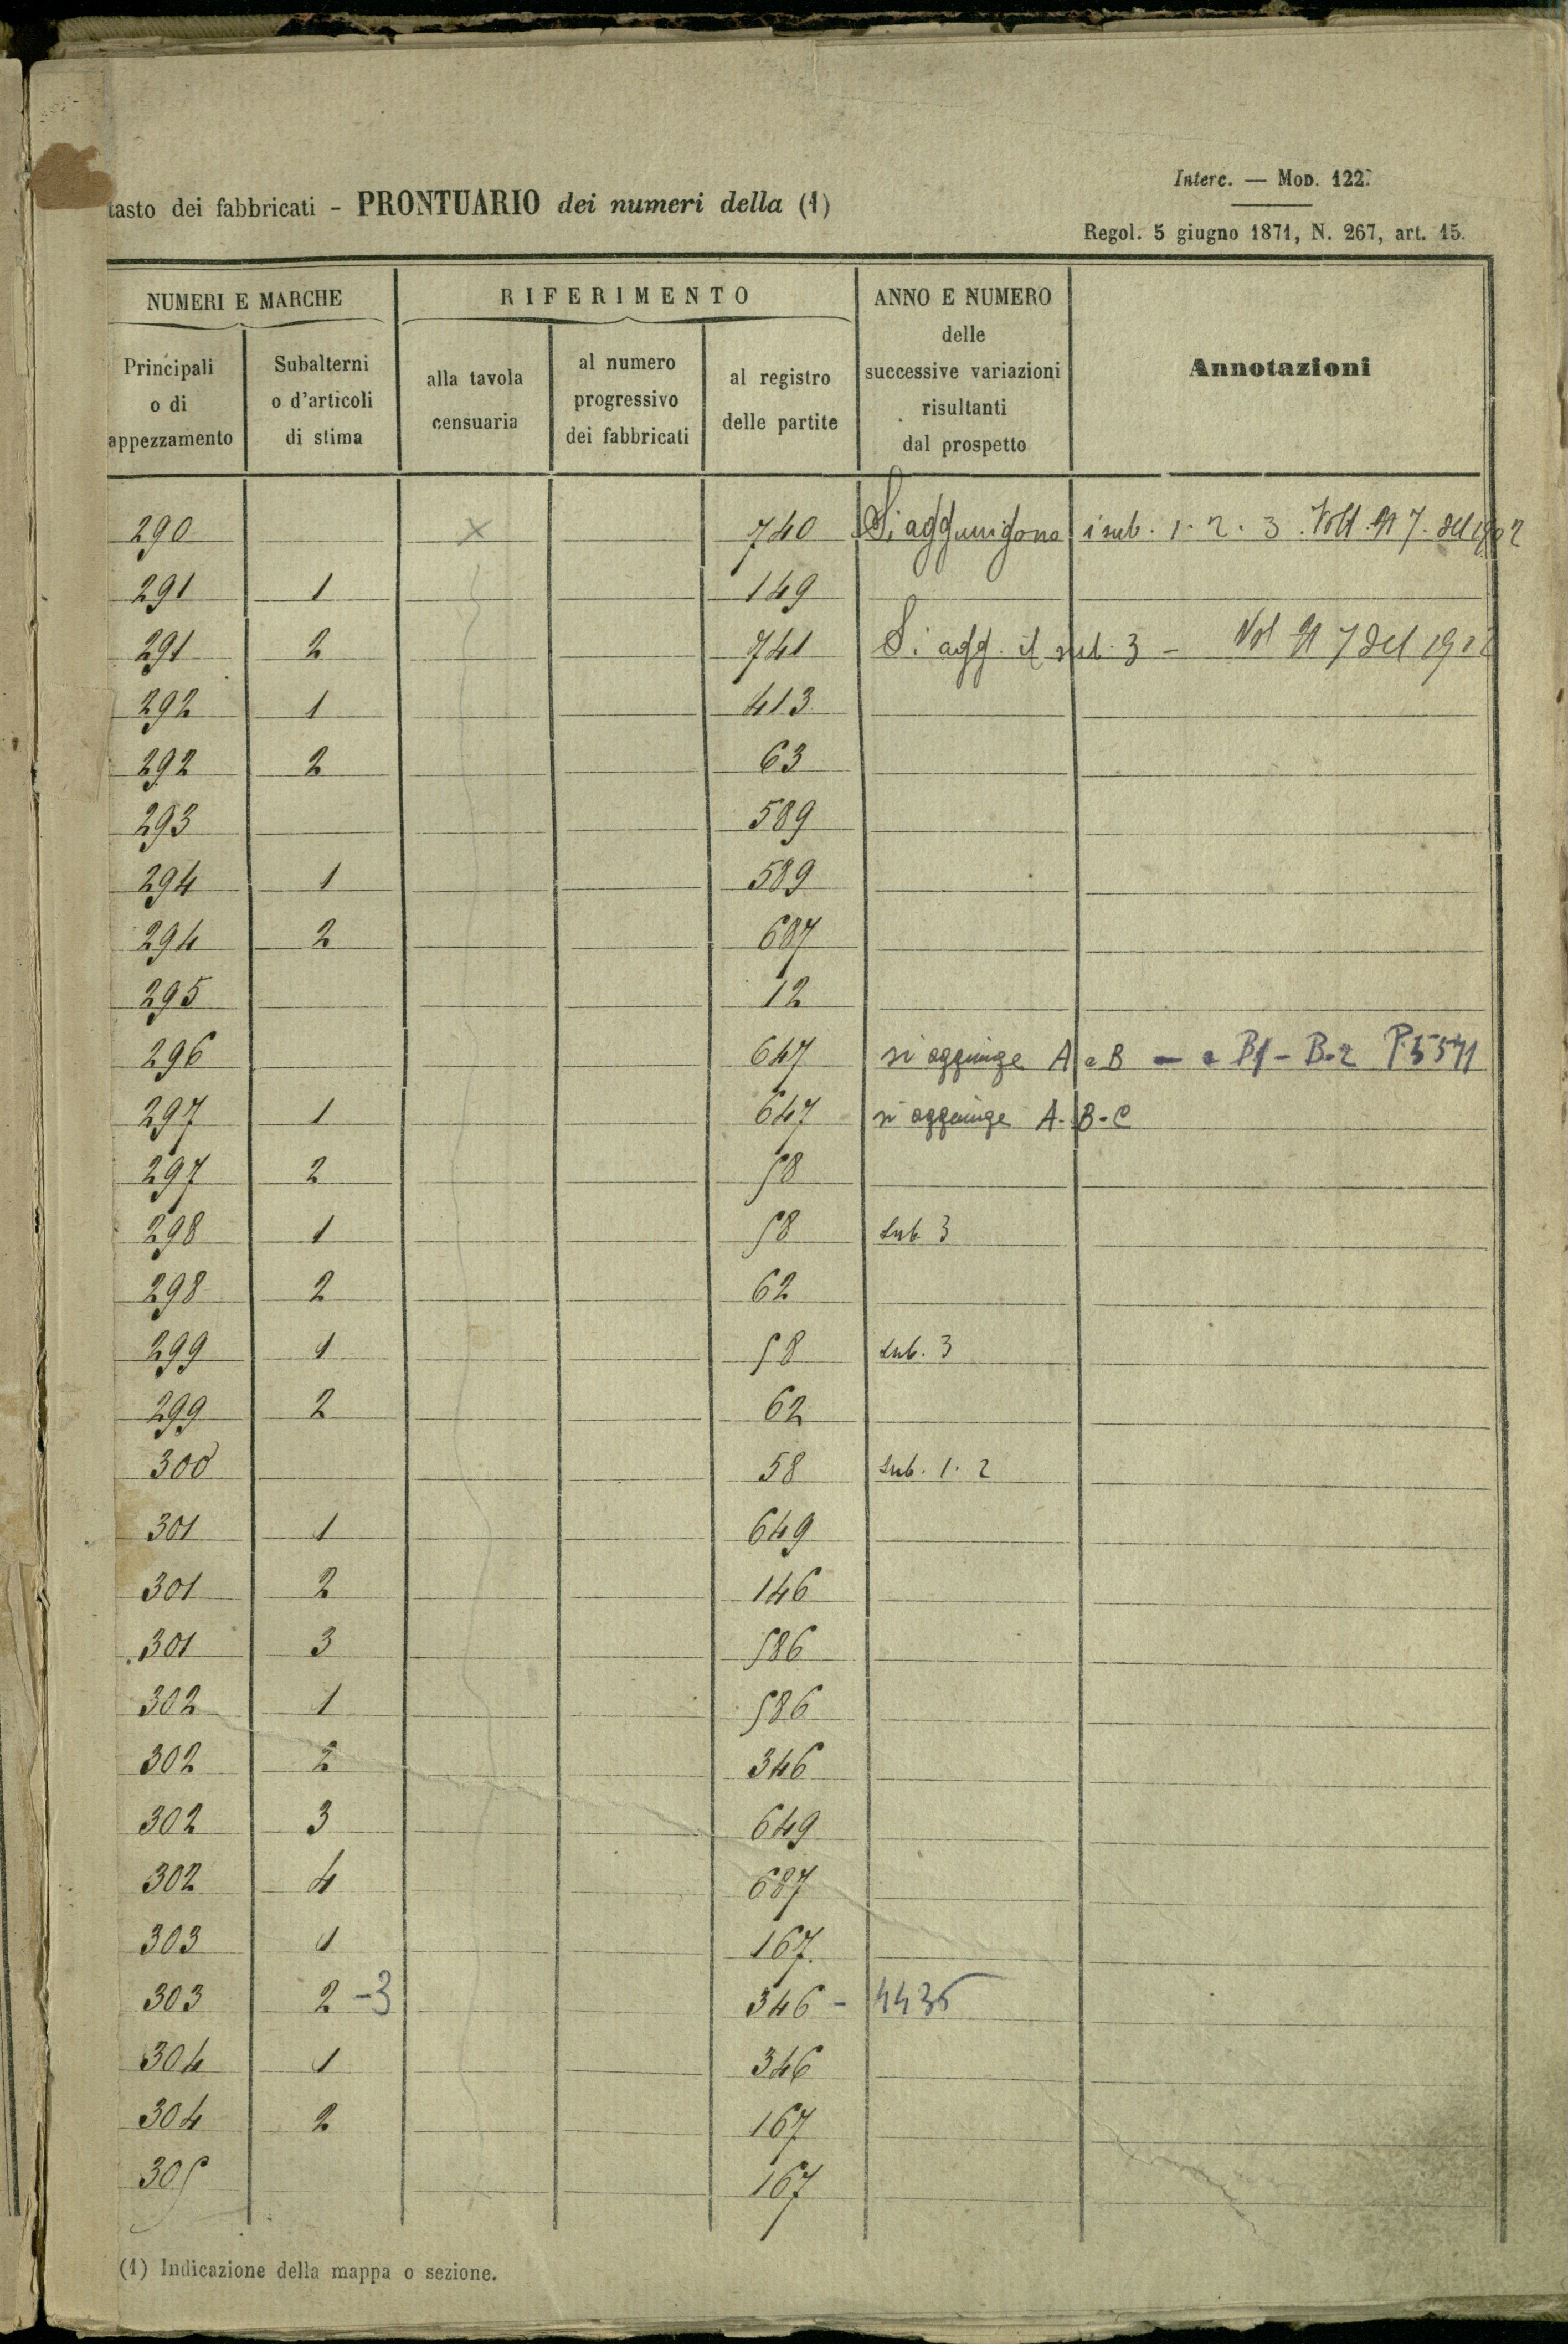 Interc. — Mod. 122.
tasto dei fabbricati - PRONTUARIO dei numeri della (1)
Regol. 5 giugno 1871, N. 267, art. 15.
NUMERI E MARCHE RIFERIMENTO ANNO E NUMERO delle successive variazioni risultanti dal prospetto Annotazioni
Principali o di appezzamento Subalterni o d'articoli di stima alla tavola censuaria al numero progressivo dei fabbricati al registro delle partite
290 x 740 Si aggiungono i sub. 1. 2. 3. 7. del 1902
291 1 149
291 2 741 Si agg. il sub. 3 - Vol 7 del 1902
292 1 413
292 2 63
293 589
294 1 589
294 2 687
295 12
296 647 si aggiunge A e B - e B1 - B-2 P. 5571
297 1 647 si aggiunge A-B-C
297 2 58
298 1 58 sub. 3
298 2 62
299 1 58 sub. 3
299 2 62
300 58 sub. 1. 2
301 1 649
301 2 146
301 3 586
302 1 586
302 2 346
302 3 649
302 4 687
303 1 167.
303 2 -3 346 - 4435
304 1 346
304 2 167
305 167
(1) Indicazione della mappa o sezione.